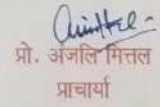 प्रो. अंजलि मित्तल
प्राचार्या